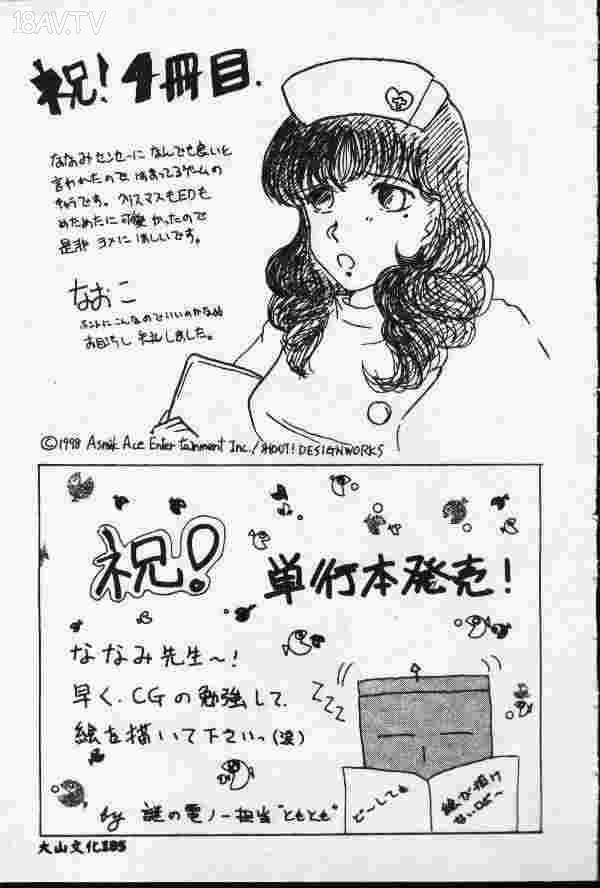 18AV.TV
祝!4冊目.
ななみセンセーに なんでも良いと
言われたので はまってるゲームの
キャラです。クリスマスもEDも
めためたに可愛かったので
是非 ヨメに ほしいです。
なおこ
ホントにこんなのでいいのかなぁ
お目汚し 失礼しました。
©1998 Asmik Ace Entertainment Inc./SHOUT! DESIGNWORKS
祝! 単行本発売!
ななみ先生〜!
早く、CGの勉強して、
絵を描いて下さいっ(涙)
by 謎の電ノー担当"ともとも"
ZZZ
どーしても
絵が描け
ないロボ〜
大山文化185